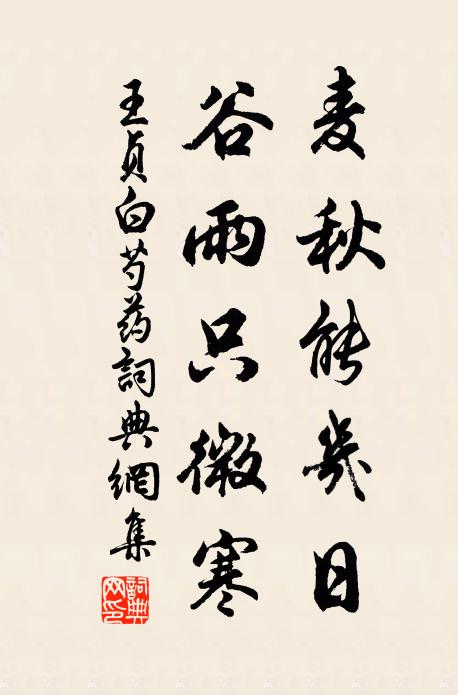 麦秋能幾日
谷雨只微寒
王貞白芍药詞典網集
詞典網印